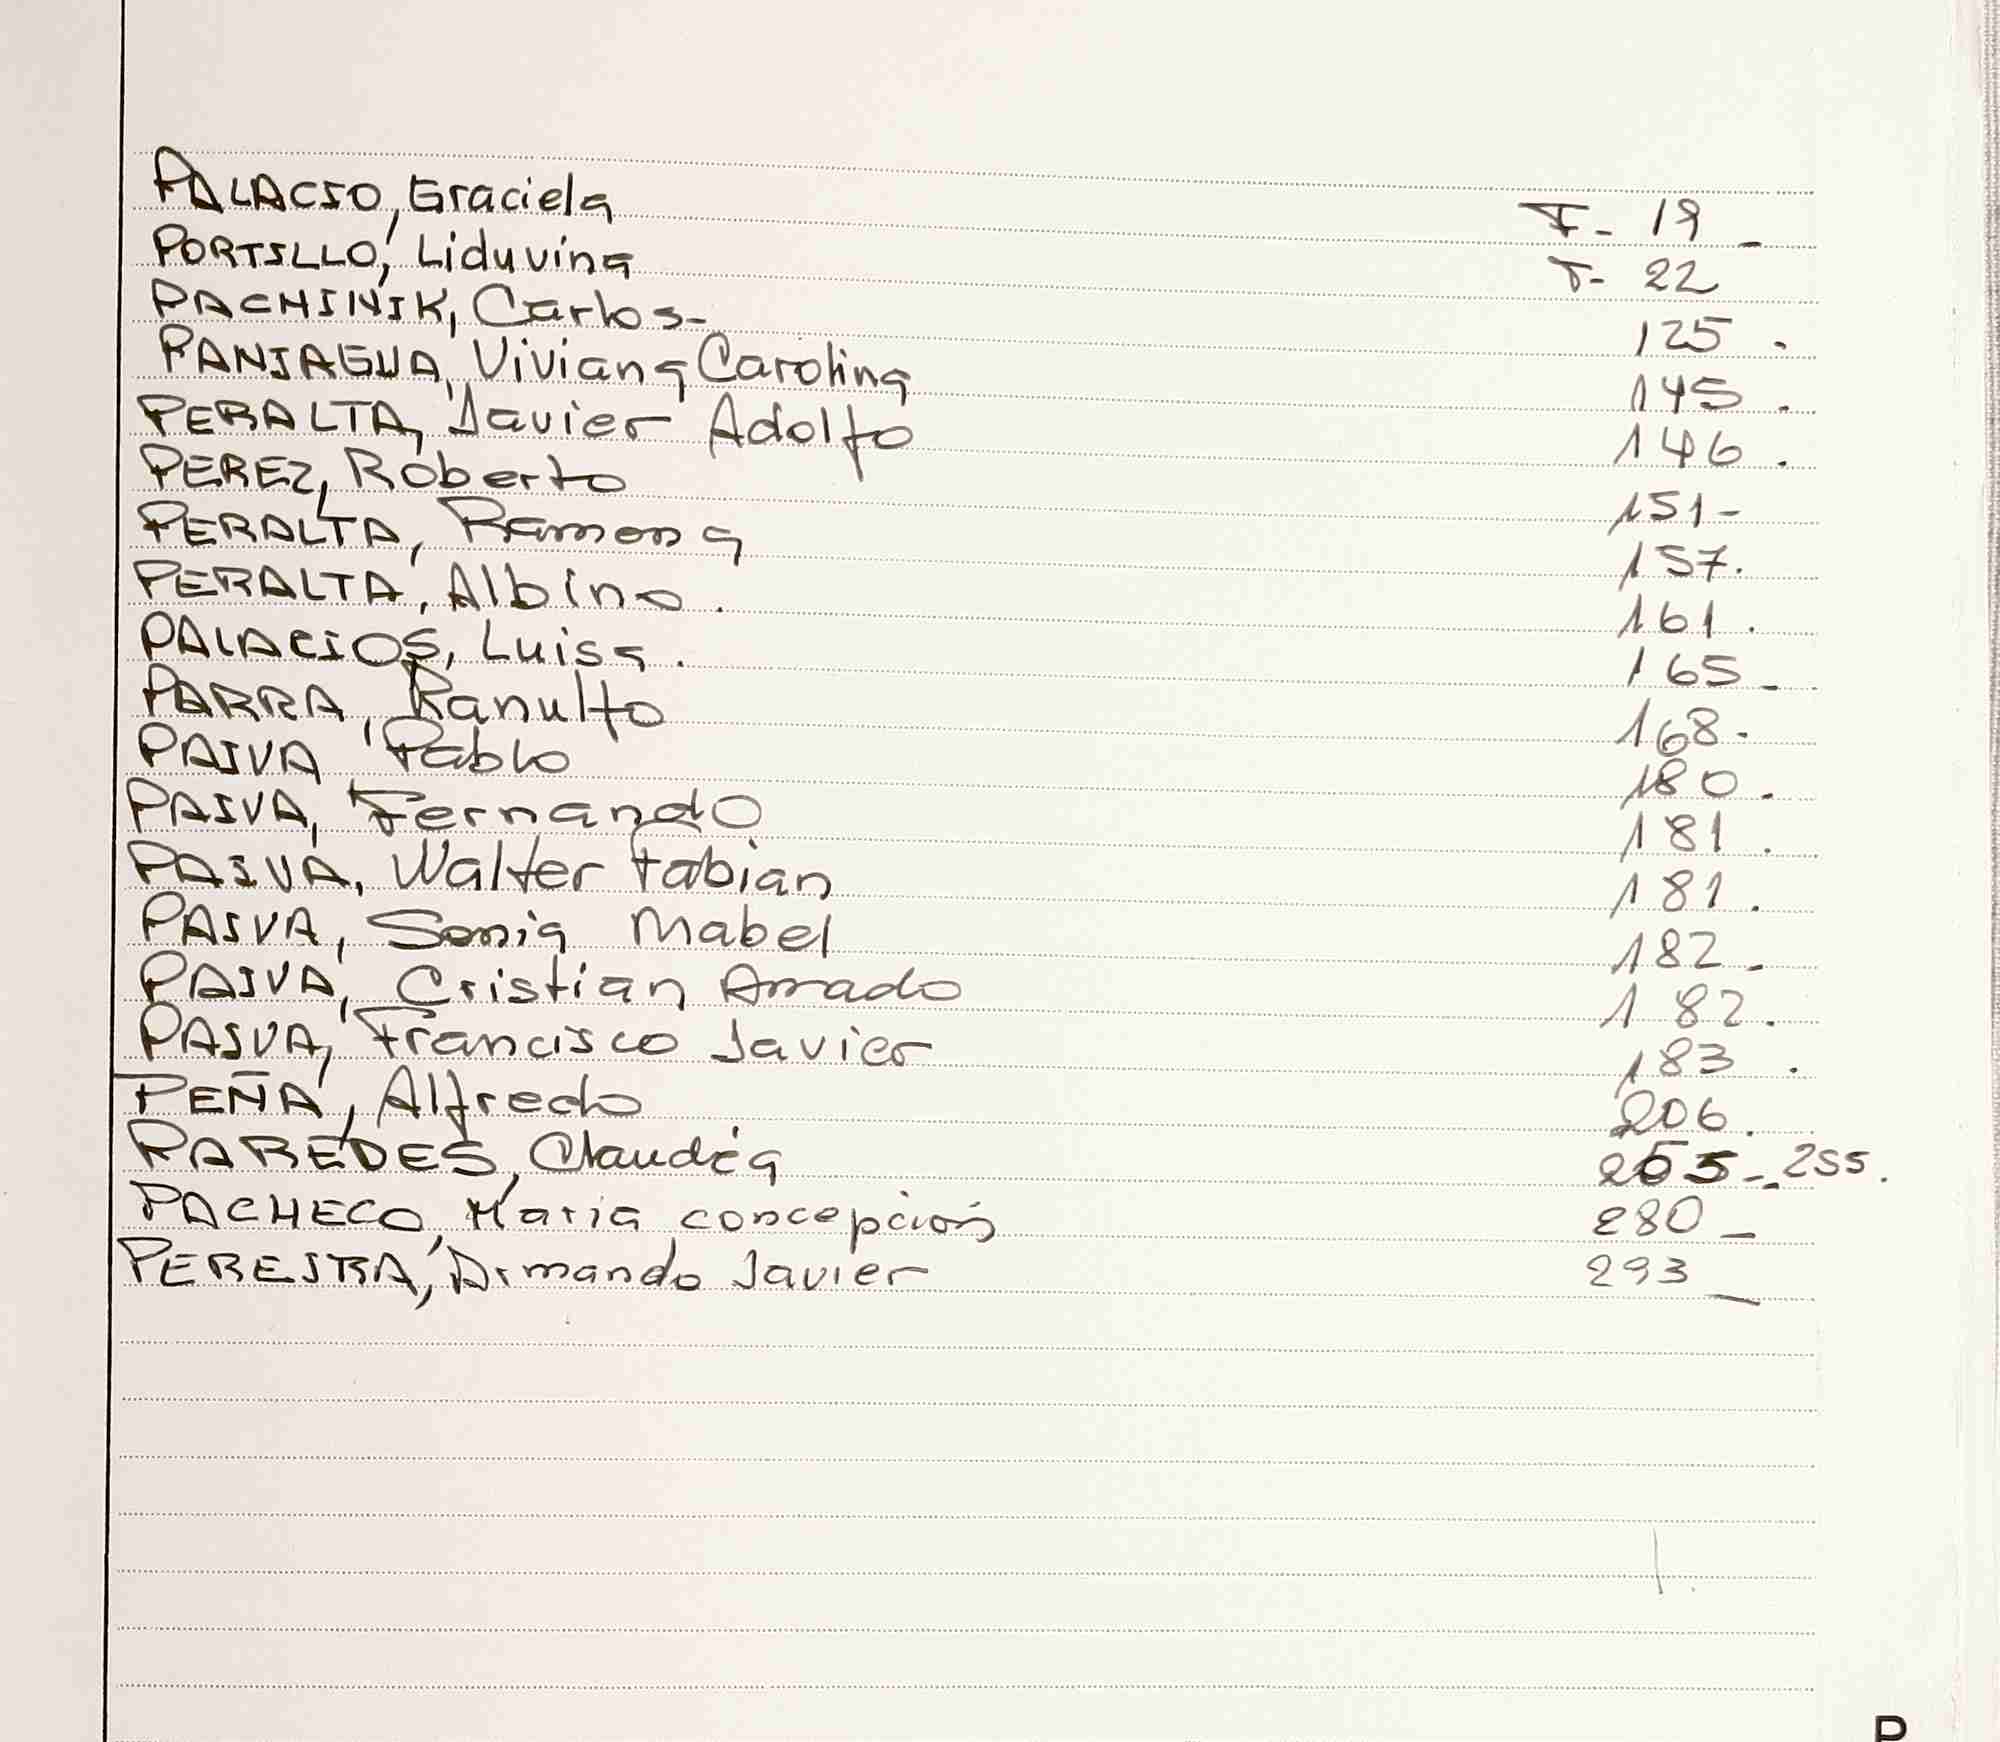 PALACIO, Graciela F- 19 -
PORTILLO, Liduvina F- 22
PACHINIK, Carlos- 125 .
PANIAGUA, Viviana Carolina 145 .
PERALTA, Javier Adolfo 146 .
PEREZ, Roberto 151 -
PERALTA, Ramona 157.
PERALTA, Albino . 161 .
PALACIOS, Luisa . 165 -
PARRA, Ranulfo 168 .
PAIVA, Pablo 180 .
PAIVA, Fernando 181 .
PAIVA, Walter Fabian 181 .
PAIVA, Sonia Mabel 182 -
PAIVA, Cristian Amado 182 .
PAIVA, Francisco Javier 183 .
PEÑA, Alfredo 206 .
PAREDES, Claudia 255 - 255 .
PACHECO, Maria concepción 280 -
PEREIRA, Armando Javier 293 -
P